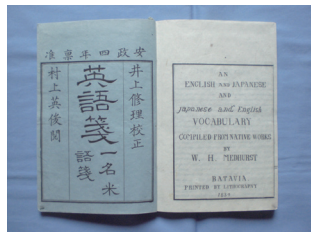 安政四年禀准
井上修理校正
英語箋
一名米
話箋
村上英俊閲
AN
ENGLISH AND JAPANESE
AND
Japanese and English
VOCABULARY
COMPILED FROM NATIVE WORKS
BY
W. H. MEDHURST
BATAVIA
PRINTED BY LITHOGRAPHY